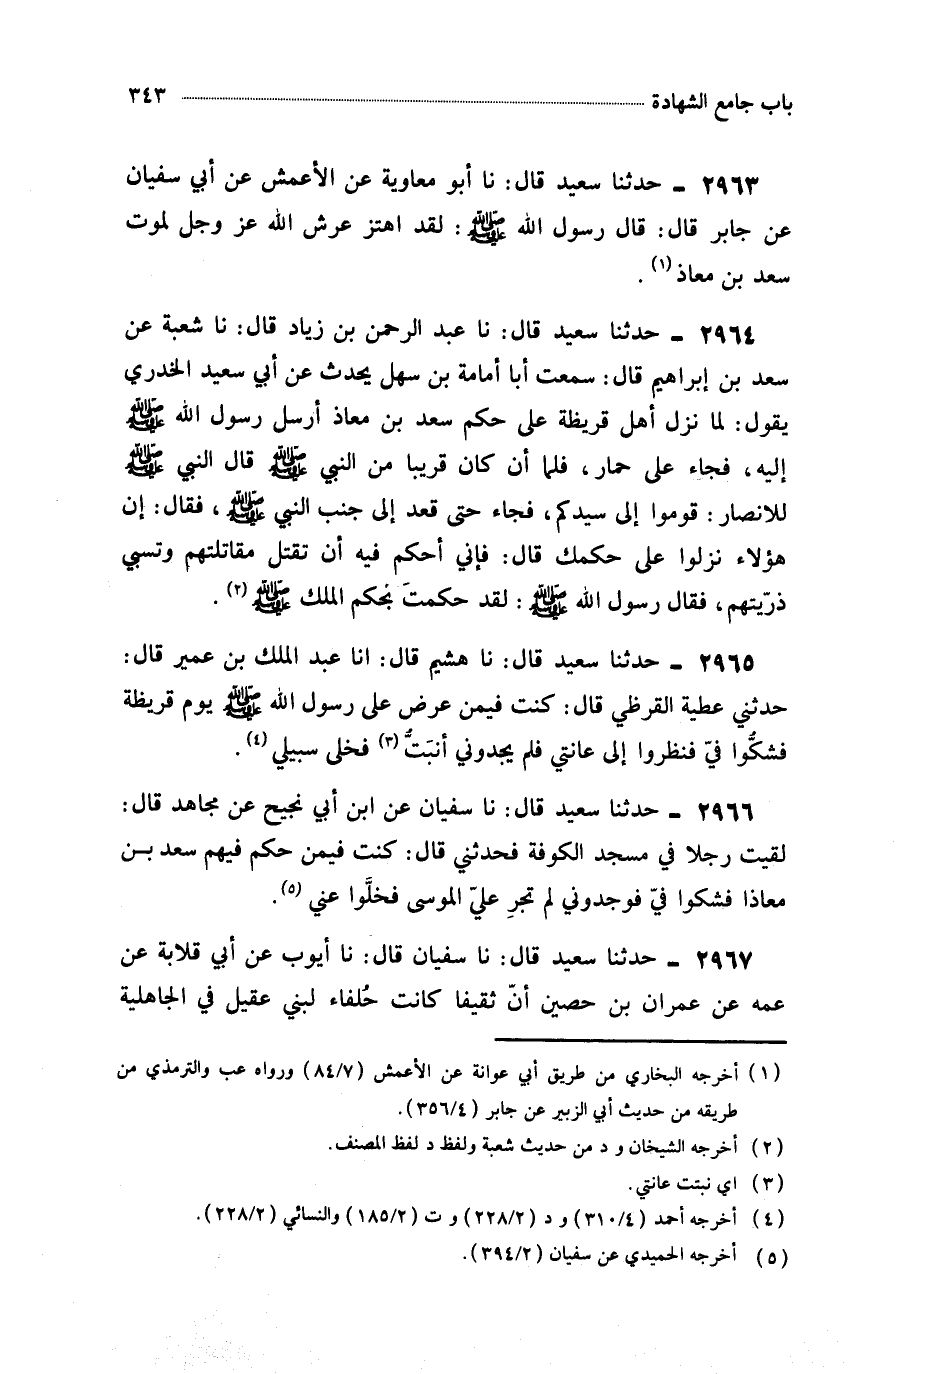 باب جامع الشهادة ................ ٣٤٣
٢٩٦٣ ـ حدثنا سعيد قال: نا أبو معاوية عن الأعمش عن أبي سفيان
عن جابر قال: قال رسول الله ﷺ: لقد اهتز عرش الله عز وجل لموت
سعد بن معاذ (١).
٢٩٦٤ ـ حدثنا سعيد قال: نا عبد الرحمن بن زياد قال: نا شعبة عن
سعد بن إبراهيم قال: سمعت أبا أمامة بن سهل يحدث عن أبي سعيد الخدري
يقول: لما نزل أهل قريظة على حكم سعد بن معاذ أرسل رسول الله ﷺ
إليه، فجاء على حمار، فلما أن كان قريبا من النبي ﷺ قال النبي ﷺ
للانصار: قوموا إلى سيدكم، فجاء حتى قعد إلى جنب النبي ﷺ، فقال: إن
هؤلاء نزلوا على حكمك قال: فإني أحكم فيه أن تقتل مقاتلتهم وتسبي
ذرّيتهم، فقال رسول الله ﷺ: لقد حكمتَ بحكم الملك ﷺ (٢).
٢٩٦٥ ـ حدثنا سعيد قال: نا هشيم قال: انا عبد الملك بن عمير قال:
حدثني عطية القرظي قال: كنت فيمن عرض على رسول الله ﷺ يوم قريظة
فشكُّوا فيّ فنظروا إلى عانتي فلم يجدوني أنبَتُّ (٣) فخلى سبيلي (٤).
٢٩٦٦ ـ حدثنا سعيد قال: نا سفيان عن ابن أبي نجيح عن مجاهد قال:
لقيت رجلا في مسجد الكوفة فحدثني قال: كنت فيمن حكم فيهم سعد بن
معاذا فشكوا فيّ فوجدوني لم تجرِ عليّ الموسى فخلَّوا عني (٥).
٢٩٦٧ ـ حدثنا سعيد قال: نا سفيان قال: نا أيوب عن أبي قلابة عن
عمه عن عمران بن حصين أنّ ثقيفا كانت حُلفاء لبني عقيل في الجاهلية
(١) أخرجه البخاري من طريق أبي عوانة عن الأعمش (٨٤/٧) ورواه عب والترمذي من
طريقه من حديث أبي الزبير عن جابر (٣٥٦/٤).
(٢) أخرجه الشيخان و د من حديث شعبة ولفظ د لفظ المصنف.
(٣) اي نبتت عانتي.
(٤) أخرجه أحمد (٣١٠/٤) و د (٢٢٨/٢) و ت (١٨٥/٢) والنسائي (٢٢٨/٢).
(٥) أخرجه الحميدي عن سفيان (٣٩٤/٢).